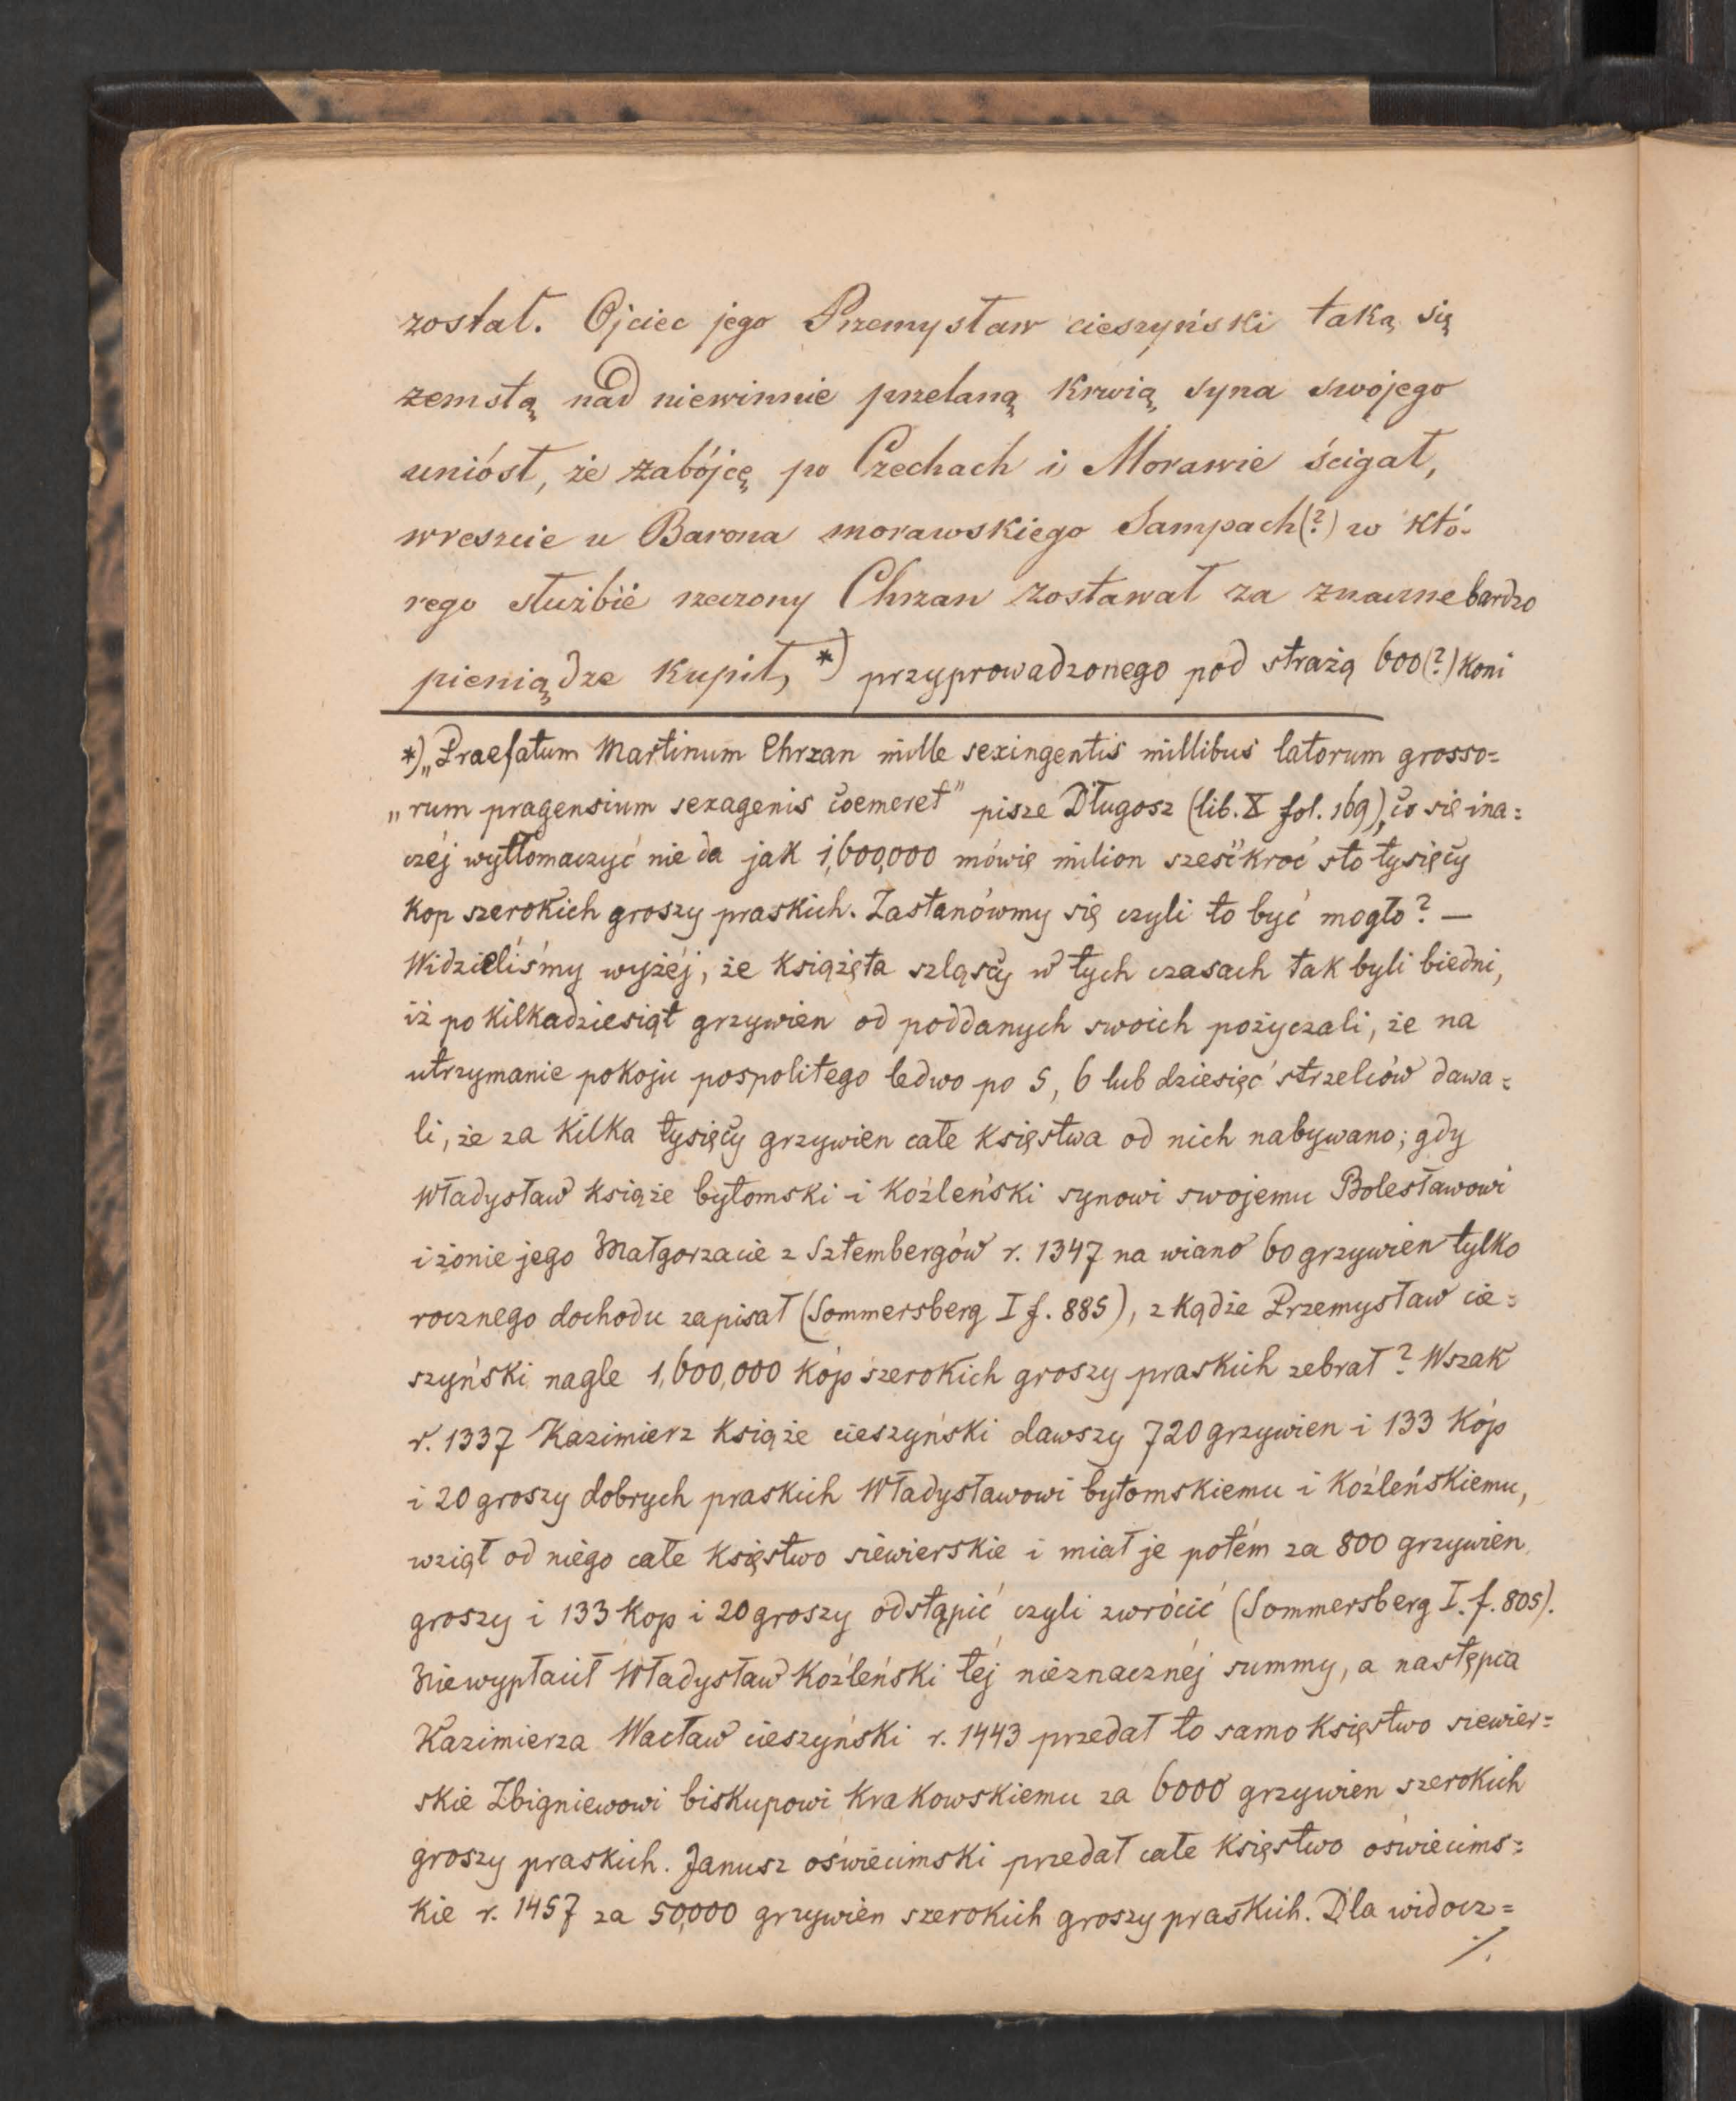 został. Ojciec jego Przemysław cieszyński taką się
zemstą nad niewinnie przelaną krwią syna swojego
uniósł, że zabójcę po Czechach i Morawie ścigał,
wreszcie u Barona morawskiego Sampach(?) w któ-
rego służbie rzeczony Chrzan zostawał za znaczne bardzo
pieniądze kupił, *) przyprowadzonego pod strażą 600(?) koni
*) „Praefatum Martinum Chrzan mille sexingentis millibus latorum grosso=
„rum pragensium sexagenis coemeret" pisze Długosz (lib. X fol. 169), co się ina=
czéj wytłomaczyć nie da jak 1,600,000 mówię milion sześćkroć sto tysięcy
kop szerokich groszy praskich. Zastanówmy się czyli to być mogło? —
Widzieliśmy wyżéj, że książęta szląscy w tych czasach tak byli biedni,
iż po kilkadziesiąt grzywien od poddanych swoich pożyczali, że na
utrzymanie pokoju pospolitego ledwo po 5, 6 lub dziesięć strzelców dawa=
li, że za kilka tysięcy grzywien całe księstwa od nich nabywano; gdy
Władysław książe bytomski i koźleński synowi swojemu Bolesławowi
i żonie jego Małgorzacie z Sztembergów r. 1347 na wiano 60 grzywien tylko
rocznego dochodu zapisał (Sommersberg I f. 885), z kądże Przemysław cie=
szyński nagle 1,600,000 kóp szerokich groszy praskich zebrał? Wszak
r. 1337 Kazimierz książe cieszyński dawszy 720 grzywien i 133 kóp
i 20 groszy dobrych praskich Władysławowi bytomskiemu i koźleńskiemu,
wziął od niego całe księstwo siewierskie i miał je potém za 800 grzywien
groszy i 133 kop i 20 groszy odstąpić czyli zwrócić (Sommersberg I. f. 805).
Niewypłacił Władysław koźleński téj nieznacznéj summy, a następca
Kazimierza Wacław cieszyński r. 1443 przedał to samo księstwo siewier=
skie Zbigniewowi biskupowi krakowskiemu za 6000 grzywien szerokich
groszy praskich. Janusz oświecimski przedał całe księstwo oświecims=
kie r. 1457 za 50,000 grzywien szerokich groszy praskich. Dla widocz=
./.